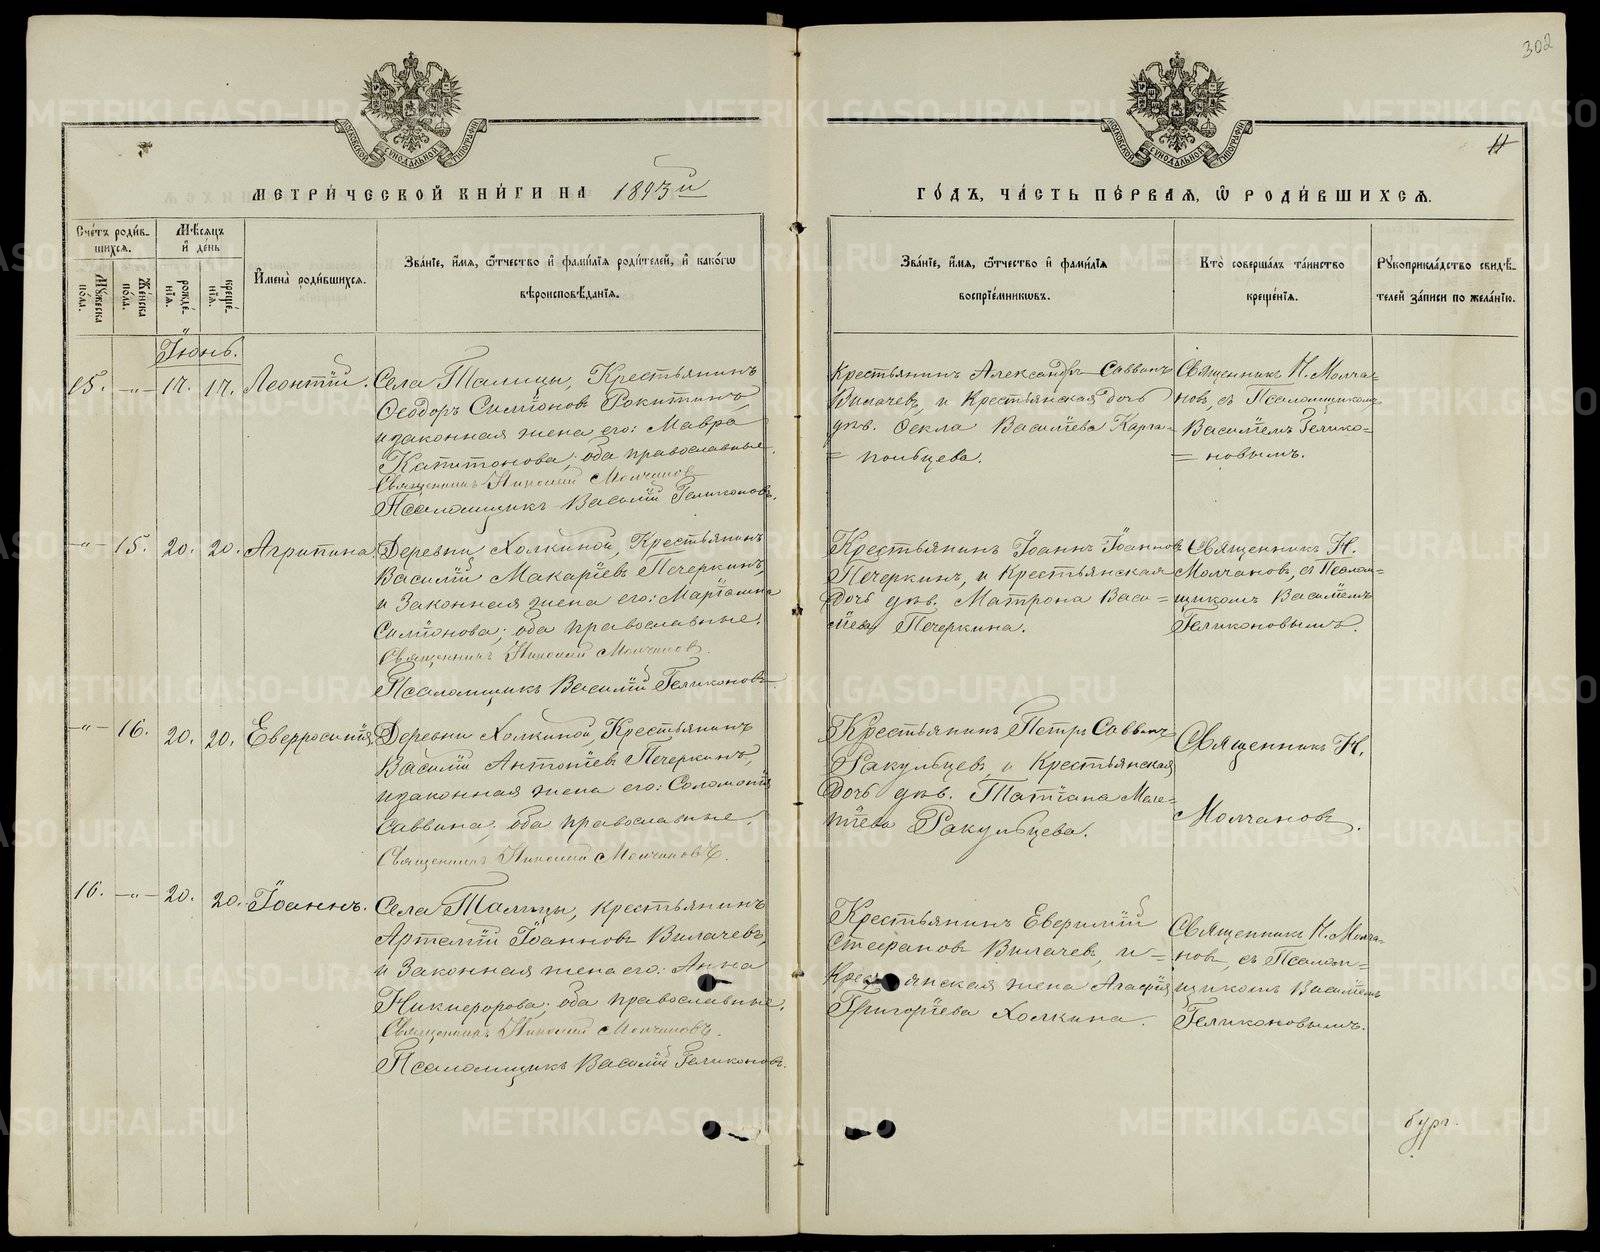 302
11
МЕТРИ́ЧЕСКОЙ КНИ́ГИ НА 1893й
ГО́ДЪ, ЧА́СТЬ ПЕ́РВАЯ, Ѡ РОДИ́ВШИХСѦ.
Сче́тъ роди́в-
шихсѧ.
Мꙋ́жеска по́ла.
Же́нска по́ла.
Мѣ́сѧцъ и҆ де́нь
рожде́-
нїѧ.
креще́-
нїѧ.
И҆мена̀ роди́вшихсѧ.
Зва́нїе, и҆́мѧ, ѻ҆́тчество и҆ фами́лїѧ роди́телей, и҆ како́гѡ
вѣроисповѣ́данїѧ.
Зва́нїе, и҆́мѧ, ѻ҆́тчество и҆ фами́лїѧ
воспрїе́мникѡвъ.
Кто̀ соверша́лъ та́инство
креще́нїѧ.
Рꙋкоприкла́дство свидѣ́-
телей за́писи по жела́нїю.
Іюнь.
15. — „ — 17. 17. Леонтій.
Села Талицы, Крестьянинъ
Ѳеодоръ Симіоновъ Рокитинъ,
и законная жена его: Мавра
Капитонова; оба православные.
Священникъ Николай Молчановъ
Псаломщикъ Василій Геликоновъ.
Крестьянинъ Александръ Саввинъ
Вилачевъ, и Крестьянская дочь
дѣв. Ѳекла Василіева Карга=
= польцева.
Священникъ Н. Молча=
новъ, съ Псаломщикомъ
Василіемъ Гелико=
= новымъ.
— „ — 15. 20. 20. Агрипина.
Деревни Холкиной, Крестьянинъ
Василій Макаріевъ Печеркинъ,
и Законная жена его: Маріамна
Симіонова; оба православные.
Священникъ Николай Молчановъ.
Псаломщикъ Василій Геликоновъ.
Крестьянинъ Іоаннъ Іоанновъ
Печеркинъ, и Крестьянская
Дочь дѣв. Матрона Васи=
ліева Печеркина.
Священникъ Н.
Молчановъ, съ Псалом=
щикомъ Василіемъ
Геликоновымъ.
— „ — 16. 20. 20. Евфросинія.
Деревни Холкиной, Крестьянинъ
Василій Антоніевъ Печеркинъ,
и законная жена его: Соломонія
Саввина; оба православные.
Священникъ Николай Молчановъ.
Крестьянинъ Петръ Саввинъ
Ракульцевъ, и Крестьянская
Дочь дѣв. Татіана Меле=
тіева Ракульцева.
Священникъ Н.
Молчановъ.
16. — „ — 20. 20. Іоаннъ.
Села Талицы, крестьянинъ
Артемій Іоанновъ Вилачевъ,
и Законная жена его: Анна
Никифорова; оба православные.
Священникъ Николай Молчановъ.
Псаломщикъ Василій Геликоновъ.
Крестьянинъ Евфимій
Стефановъ Вилачевъ, и=
Крестьянская жена Агафія
Григоріева Холкина.
Священникъ Н. Молча=
новъ, съ Псалом=
щикомъ Василіемъ
Геликоновымъ.